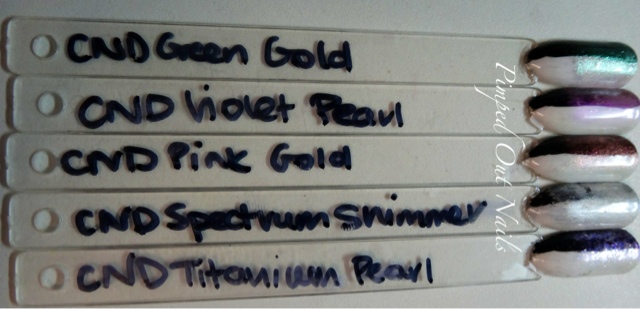 CND Green Gold
CND Violet Pearl
CND Pink Gold
CND Spectrum Shimmer
CND Titanium Pearl
Pimped Out Nails